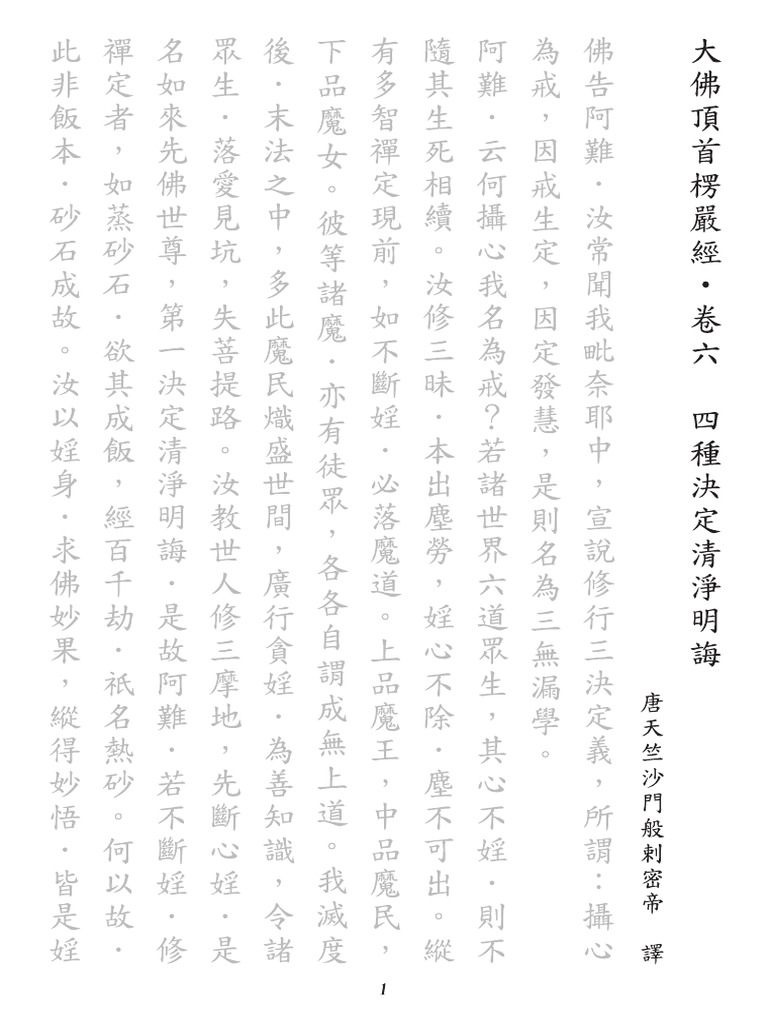 大佛頂首楞嚴經・卷六　四種決定清淨明誨
唐天竺沙門般剌密帝　譯
佛告阿難．汝常聞我毗奈耶中，宣說修行三決定義，所謂：攝心
為戒，因戒生定，因定發慧，是則名為三無漏學。
阿難．云何攝心我名為戒？若諸世界六道眾生，其心不婬．則不
隨其生死相續。汝修三昧．本出塵勞，婬心不除．塵不可出。縱
有多智禪定現前，如不斷婬．必落魔道。上品魔王，中品魔民，
下品魔女。彼等諸魔．亦有徒眾，各各自謂成無上道。我滅度
後．末法之中，多此魔民熾盛世間，廣行貪婬．為善知識，令諸
眾生．落愛見坑，失菩提路。汝教世人修三摩地，先斷心婬．是
名如來先佛世尊，第一決定清淨明誨．是故阿難．若不斷婬．修
禪定者，如蒸砂石．欲其成飯，經百千劫．祇名熱砂。何以故．
此非飯本．砂石成故。汝以婬身．求佛妙果，縱得妙悟．皆是婬
1